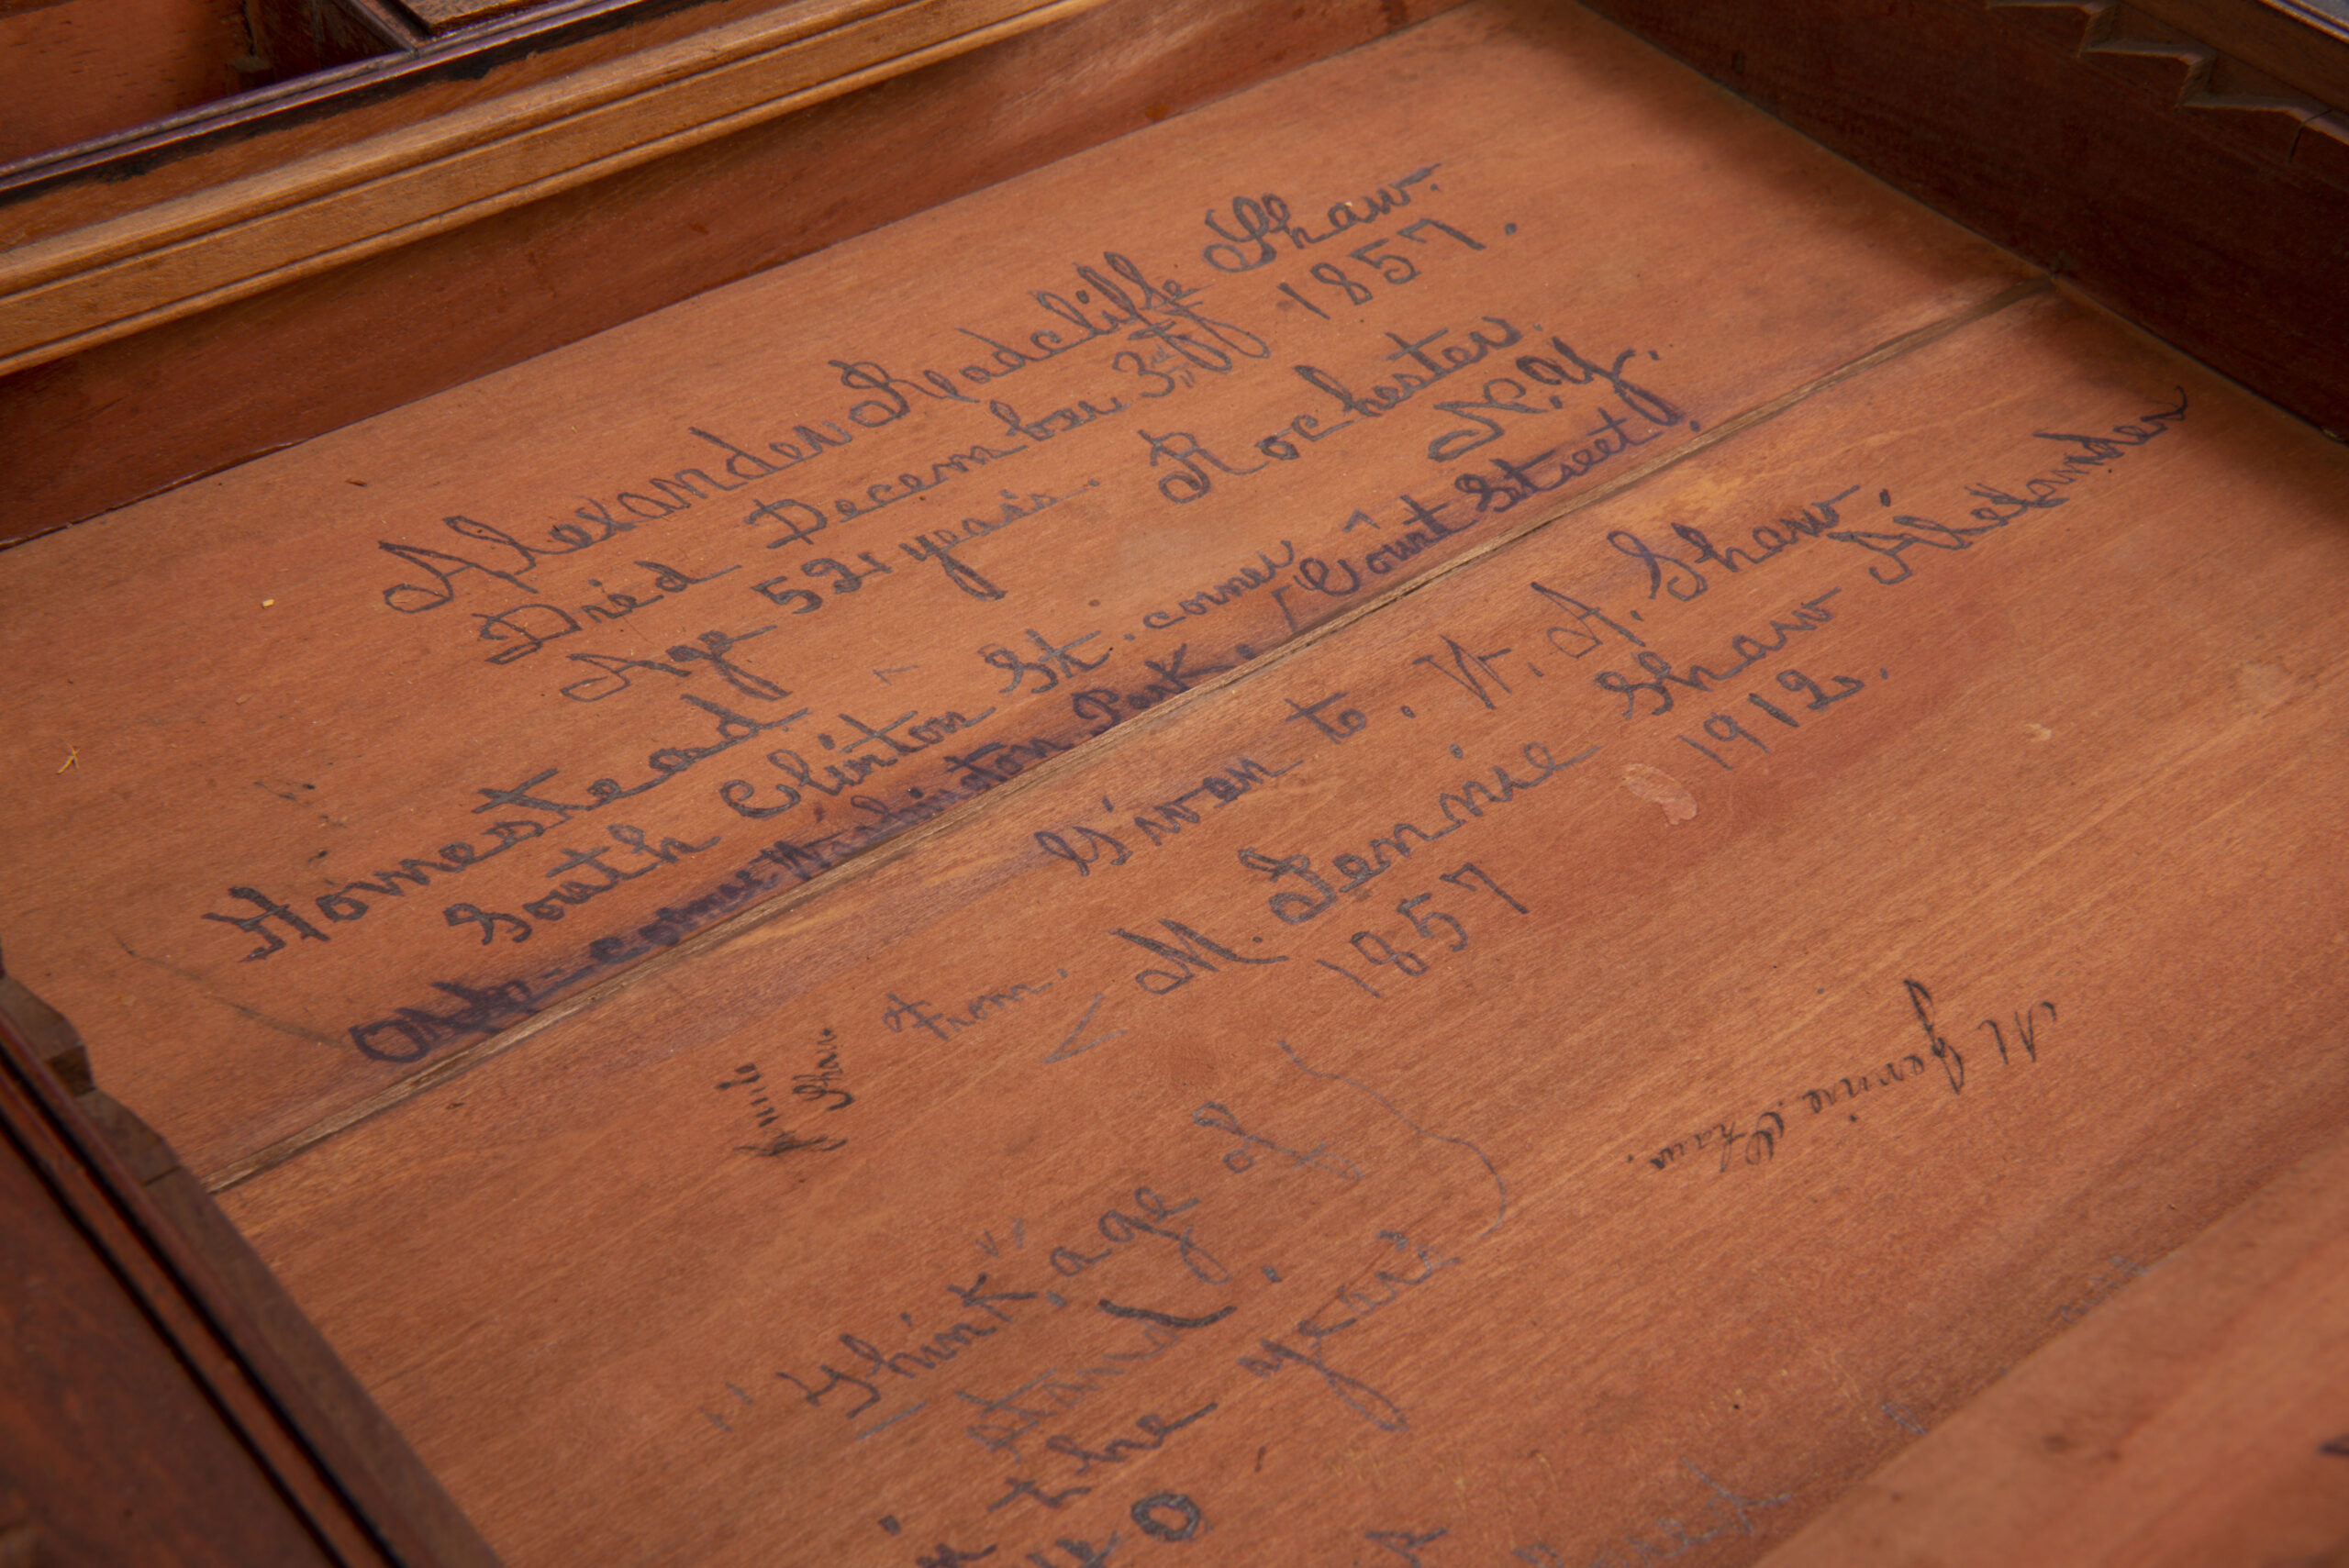 Alexander Readcliffe Shaw.
Died December 3rd 1857.
Age 52 years. Rochester
N.Y.
Homestead
South Clinton St. corner Court Street.
corner Washington Park.
Given to. W. A. Shaw.
From. M. Jennie Shaw Alexander
1857 1912.
Jennie
Shaw.
M Jennie Shaw.
"Think" age of
stand.
the years